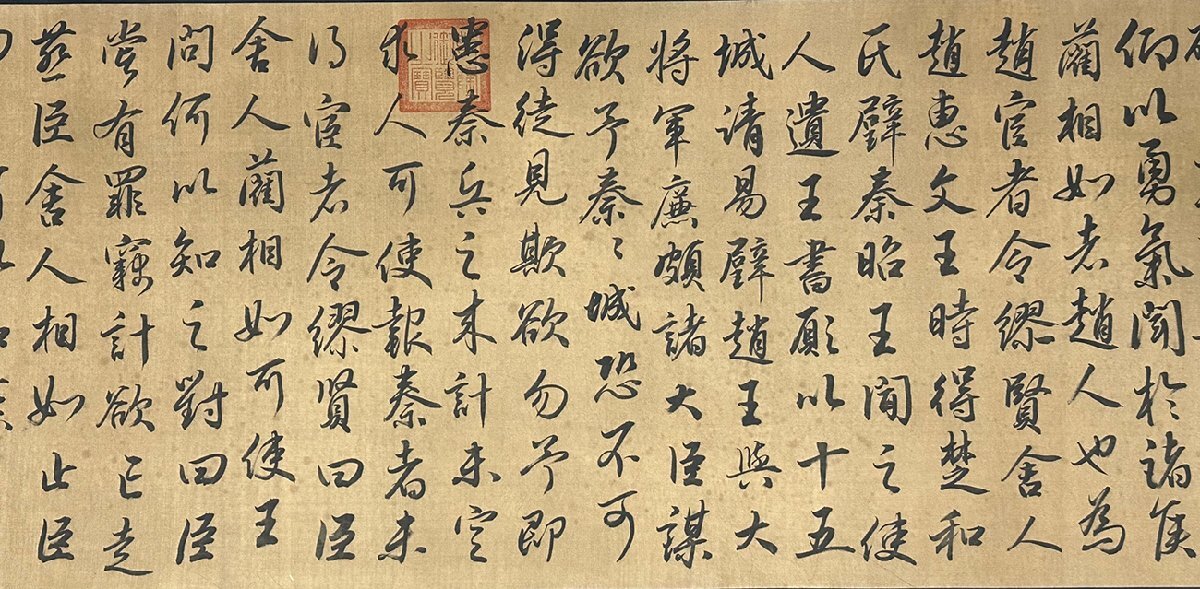 卿以勇氣聞於諸侯
藺相如者趙人也為
趙宦者令繆賢舍人
趙惠文王時得楚和
氏璧秦昭王聞之使
人遺王書願以十五
城請易璧趙王與大
將軍廉頗諸大臣謀
欲予秦〻城恐不可
得徒見欺欲勿予即
患秦兵之来計未定
求人可使報秦者未
得宦者令繆賢曰臣
舍人藺相如可使王
問何以知之對曰臣
嘗有罪竊計欲亡走
燕臣舍人相如止臣